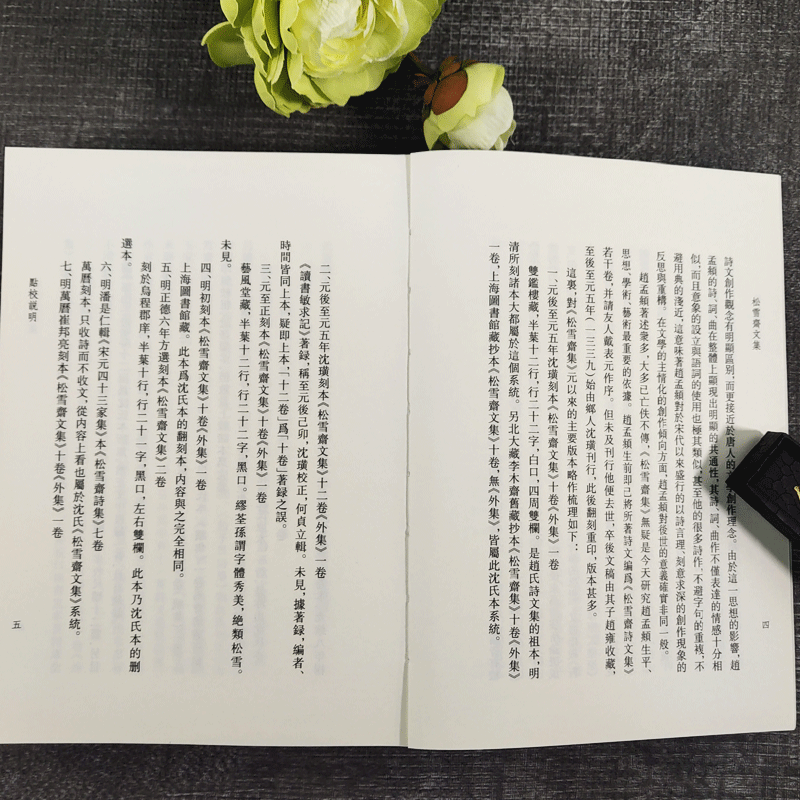 松雪齋文集
四
詩文創作觀念有明顯區別,而更接近於唐人的創作理念。由於這一思想的影響,趙
孟頫的詩、詞、曲在整體上顯現出明顯的共通性,其詩、詞、曲作不僅表達的情感十分相
似,而且意象的設立與語詞的使用也極其類似,甚至他的很多詩作,不避字句的重複,不
避用典的淺近,這意味著趙孟頫對於宋代以來盛行的以詩言理、刻意求深的創作現象的
反思與重構。在文學的主情化的創作傾向方面,趙孟頫對後世的意義確實非同一般。
趙孟頫著述衆多,大多已亡佚不傳,《松雪齋集》無疑是今天研究趙孟頫生平、
思想、學術、藝術最重要的依據。趙孟頫生前即已將所著詩文編爲《松雪齋詩文集》
若干卷,并請友人戴表元作序。但未及刊行他便去世,卒後文稿由其子趙雍收藏,
至後至元五年(一三三九)始由鄉人沈璜刊行,此後翻刻重印,版本甚多。
這裏,對《松雪齋集》元以來的主要版本略作梳理如下:
一、元後至元五年沈璜刻本《松雪齋文集》十卷《外集》一卷
雙鑑樓藏,半葉十二行,行二十二字,白口,四周雙欄。是趙氏詩文集的祖本,明
清所刻諸本大都屬於這個系統。另北大藏李木齋舊藏抄本《松雪齋文集》十卷《外集》
一卷,上海圖書館藏抄本《松雪齋文集》十卷,無《外集》,皆屬此沈氏本系統。
二、元後至元五年沈璜刻本《松雪齋文集》十二卷《外集》一卷
《讀書敏求記》著録,稱至元後己卯,沈璜校正,何貞立輯。未見,據著録,編者、
時間皆同上本,疑即上本,「十二卷」爲「十卷」著録之誤。
三、元至正刻本《松雪齋文集》十卷《外集》一卷
藝風堂藏,半葉十二行,行二十二字,黑口。繆荃孫謂字體秀美,絶類松雪。
未見。
四、明初刻本《松雪齋文集》十卷《外集》一卷
上海圖書館藏。此本爲沈氏本的翻刻本,内容與之完全相同。
五、明正德六年方選刻本《松雪齋文集》二卷
刻於烏程郡庠,半葉十行,行二十一字,黑口,左右雙欄。此本乃沈氏本的删
選本。
六、明潘是仁輯《宋元四十三家集》本《松雪齋詩集》七卷
萬曆刻本,只收詩而不收文,從内容上看也屬於沈氏《松雪齋文集》系統。
七、明萬曆崔邦亮刻本《松雪齋文集》十卷《外集》一卷
點校説明
五